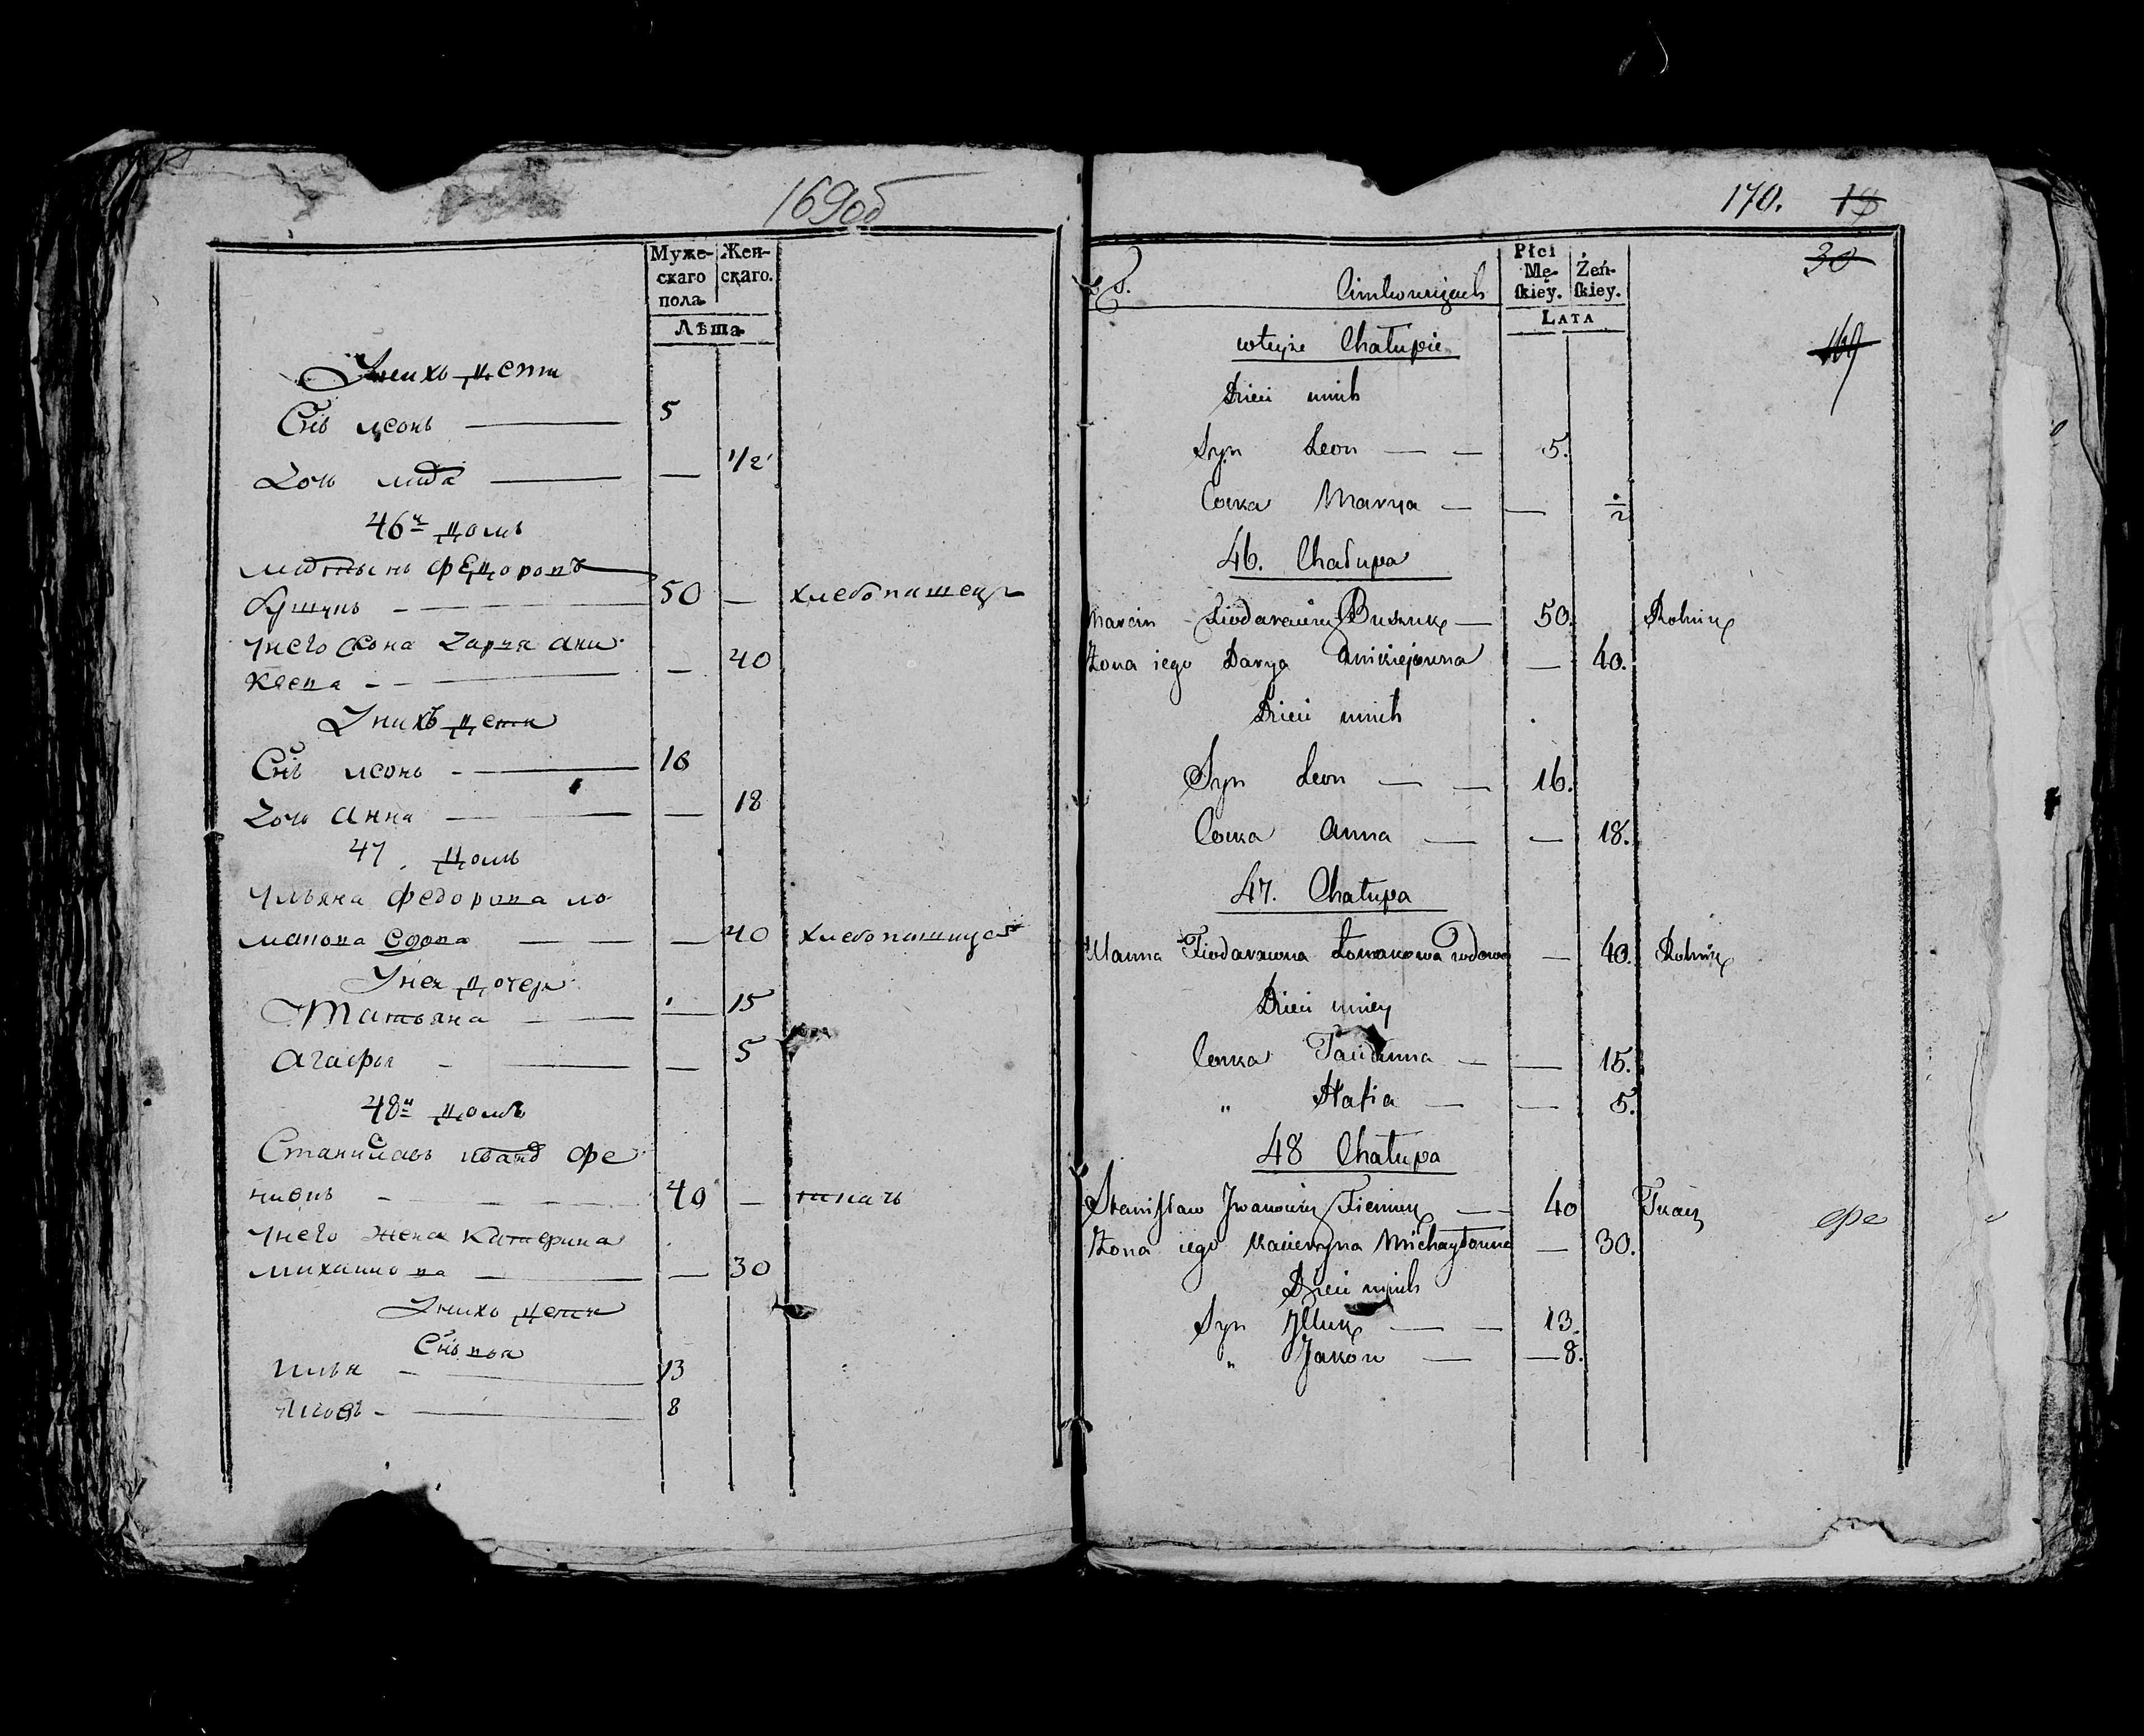 169об
Муже-
скаго
пола
Жен-
скаго.
Лѣта
Унихъ дети
Снъ леонъ 5
Дочь 1/2
46й домъ
Федоровъ
50 — хлебопашецъ
Унего жона Дарья ани
кеева — 40
Унихъ дети
Снъ леонъ 16
Дочь Анна — 18
47. домъ
Ульяна Федорова ло
макова вдова — 40
Унея дочери
Татьяна — 15
Агафья — 5
48й домъ
Станиславъ ивановъ Фе
нюкъ 40 — ткачь
Унего жена Катерина
михайлова — 30
Унихъ дети
Снвья
илья 13
8
170. 19
30
169
Płci
Mę-
ſkiey.
Żeń-
ſkiey.
LATA
Cimkowiczach
wteyże Chałupie
Dzieci unich
Syn Leon — — 5.
Corka Marya — — 1/2
46. Chałupa
Marcin Fiodarowicz Buszuk — 50. Rolnik
Żona iego Darya Anikiejowna — 40.
Dzieci unich
Syn Leon — — 16.
Corka Anna — — 18.
47. Chałupa
Ulanna Fiodarowna Łomakowa wdowa — 40. Rolnik
Dzieci uniey
Corka Tacianna — — 15.
" Hafia — — 5.
48 Chałupa
Stanisław Jwanowicz Fieniuk — — 40 Tkacz
Żona iego Kacieryna Michayłowna — 30.
Dzieci unich
Syn — — 13.
" Jaków — — 8.
фе